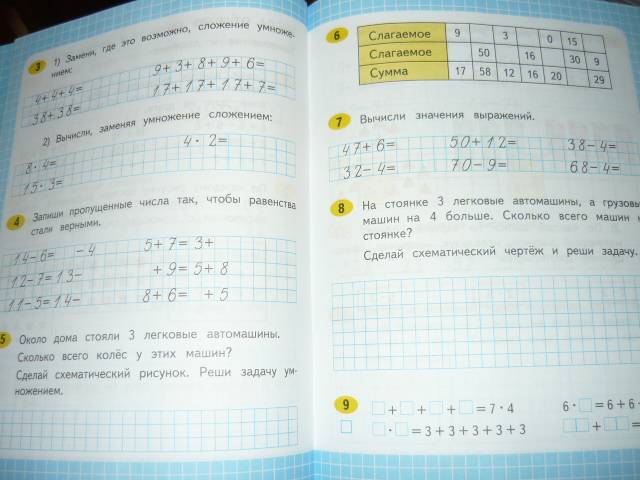 3 1) Замени, где это возможно, сложение умноже-
нием:
4+4+4= 9+3+8+9+6=
38+38= 17+17+17+7=
2) Вычисли, заменяя умножение сложением:
8·4= 4·2=
15·3=
4 Запиши пропущенные числа так, чтобы равенства
стали верными.
14-6= -4 5+7=3+
12-7=13- +9=5+8
11-5=14- 8+6= +5
5 Около дома стояли 3 легковые автомашины.
Сколько всего колёс у этих машин?
Сделай схематический рисунок. Реши задачу ум-
ножением.
6 Слагаемое 9 3 0 15
Слагаемое 50 16 30 9
Сумма 17 58 12 16 20 29
7 Вычисли значения выражений.
47+6= 50+12= 38-4=
32-4= 70-9= 68-4=
8 На стоянке 3 легковые автомашины, а грузовы
машин на 4 больше. Сколько всего машин н
стоянке?
Сделай схематический чертёж и реши задачу.
9 + + + =7·4 6· =6+6
· =3+3+3+3+3 + =